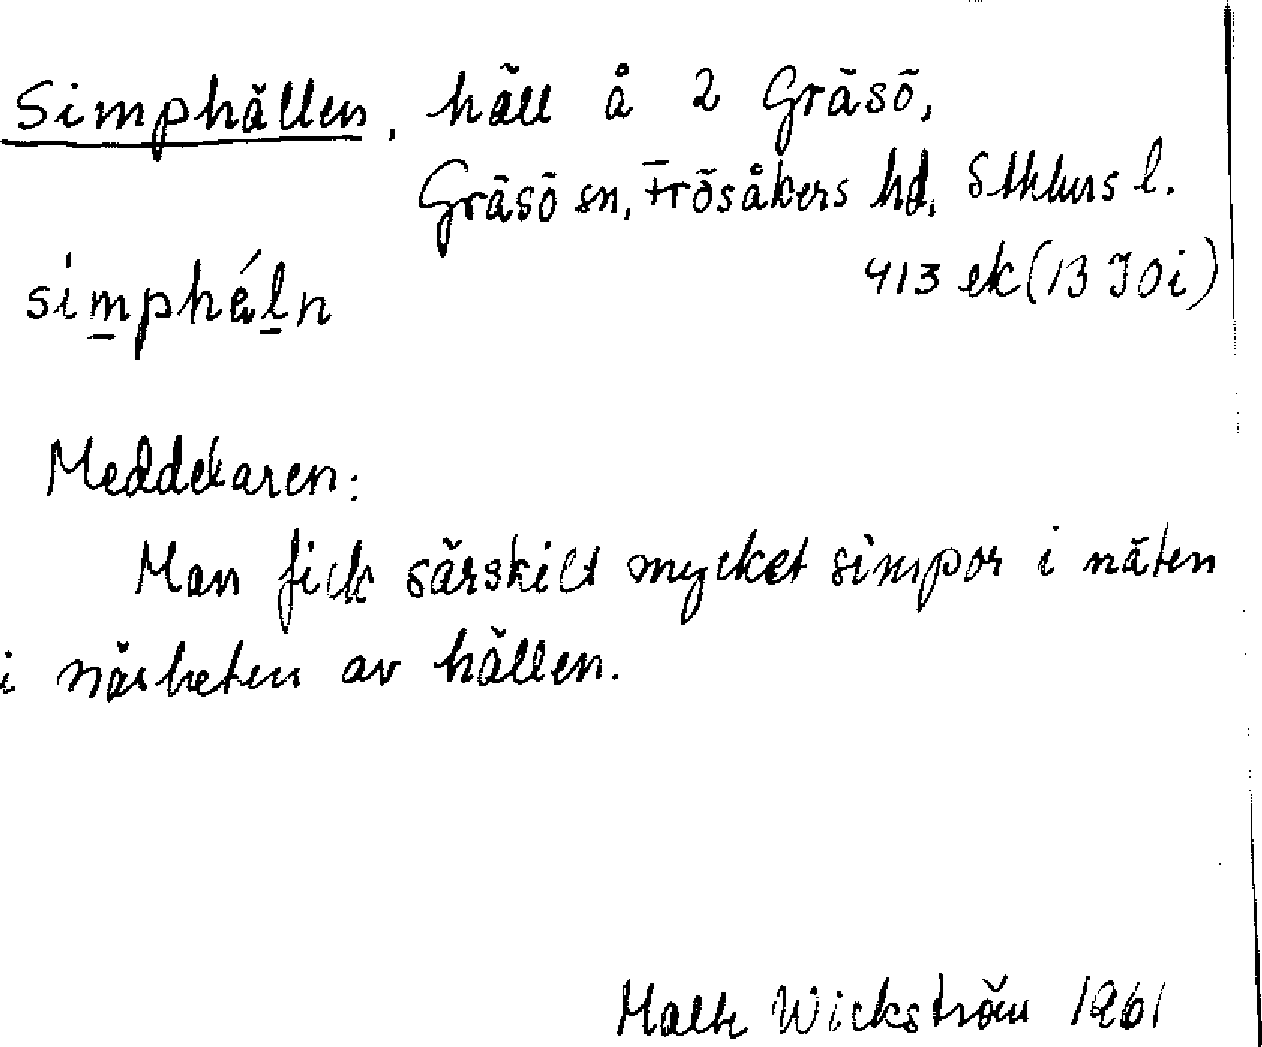 Simphällen, häll å 2 Gräsö,
Gräsö sn, Frösåkers hd, Sthlms l.
413 ek (13 I 0 i)
símphéln
Meddelaren:
Man fick särskilt mycket simpor i näten
i närheten av hällen.
Malte Wickström 1961